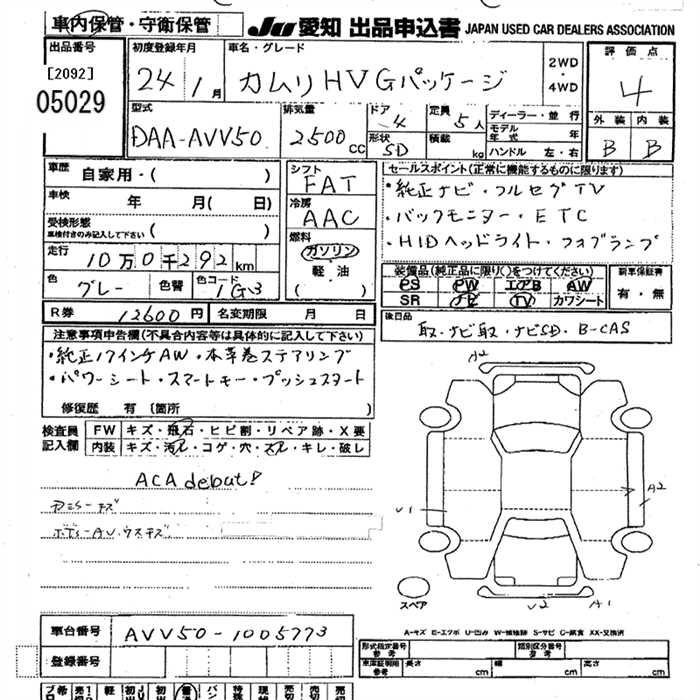 車内保管・守衛保管 JU 愛知 出品申込書 JAPAN USED CAR DEALERS ASSOCIATION
出品番号 初度登録年月 車名・グレード 評価点
[2092] 24年 1月 カムリ HV Gパッケージ 2WD・4WD 4
05029
型式 排気量 ドア 定員 ディーラー・並行 外装 内装
DAA-AVV50 2500cc 4 5人 モデル年式 年 B B
形状 SD 積載 kg ハンドル 左・右
車歴 自家用・( ) シフト FAT セールスポイント(正常に機能するものに限ります)
車検 年 月( 日) 冷房 AAC ・純正ナビ・フルセグTV
受検形態 車検付きのみ記入して下さい ( ) ・バックモニター・ETC
走行 10万0千292km 燃料 ガソリン 軽・油 ( ) ・HIDヘッドライト・フォグランプ
色 グレー 色替 色コード 1G3 装備品(純正品に限り○をつけてください) 新車保証書
PS PW エアB AW 有・無
SR ナビ TV カワシート
R券 12600円 名変期限 月 日 後日品
取・ナビ取・ナビSD・B-CAS
注意事項申告欄(不具合内容等は具体的に記入して下さい)
・純正17インチAW・本革巻ステアリング
・パワーシート・スマートキー・プッシュスタート
修復歴 有 (箇所 )
検査員記入欄 FW キズ・飛石・ヒビ割・リペア跡・X要
内装 キズ・汚れ・コゲ・穴・スレ・キレ・破レ
ACA debut!
A2
U1
A2
U2 A1
スペア
A-キズ E-エクボ U-凹み W-補修跡 S-サビ C-腐食 XX-交換済
車台番号 AVV50-1005773
登録番号
形式指定番号 参考 類別区分番号 参考
車庫証明用 参考 長さ cm 幅 cm 高さ cm